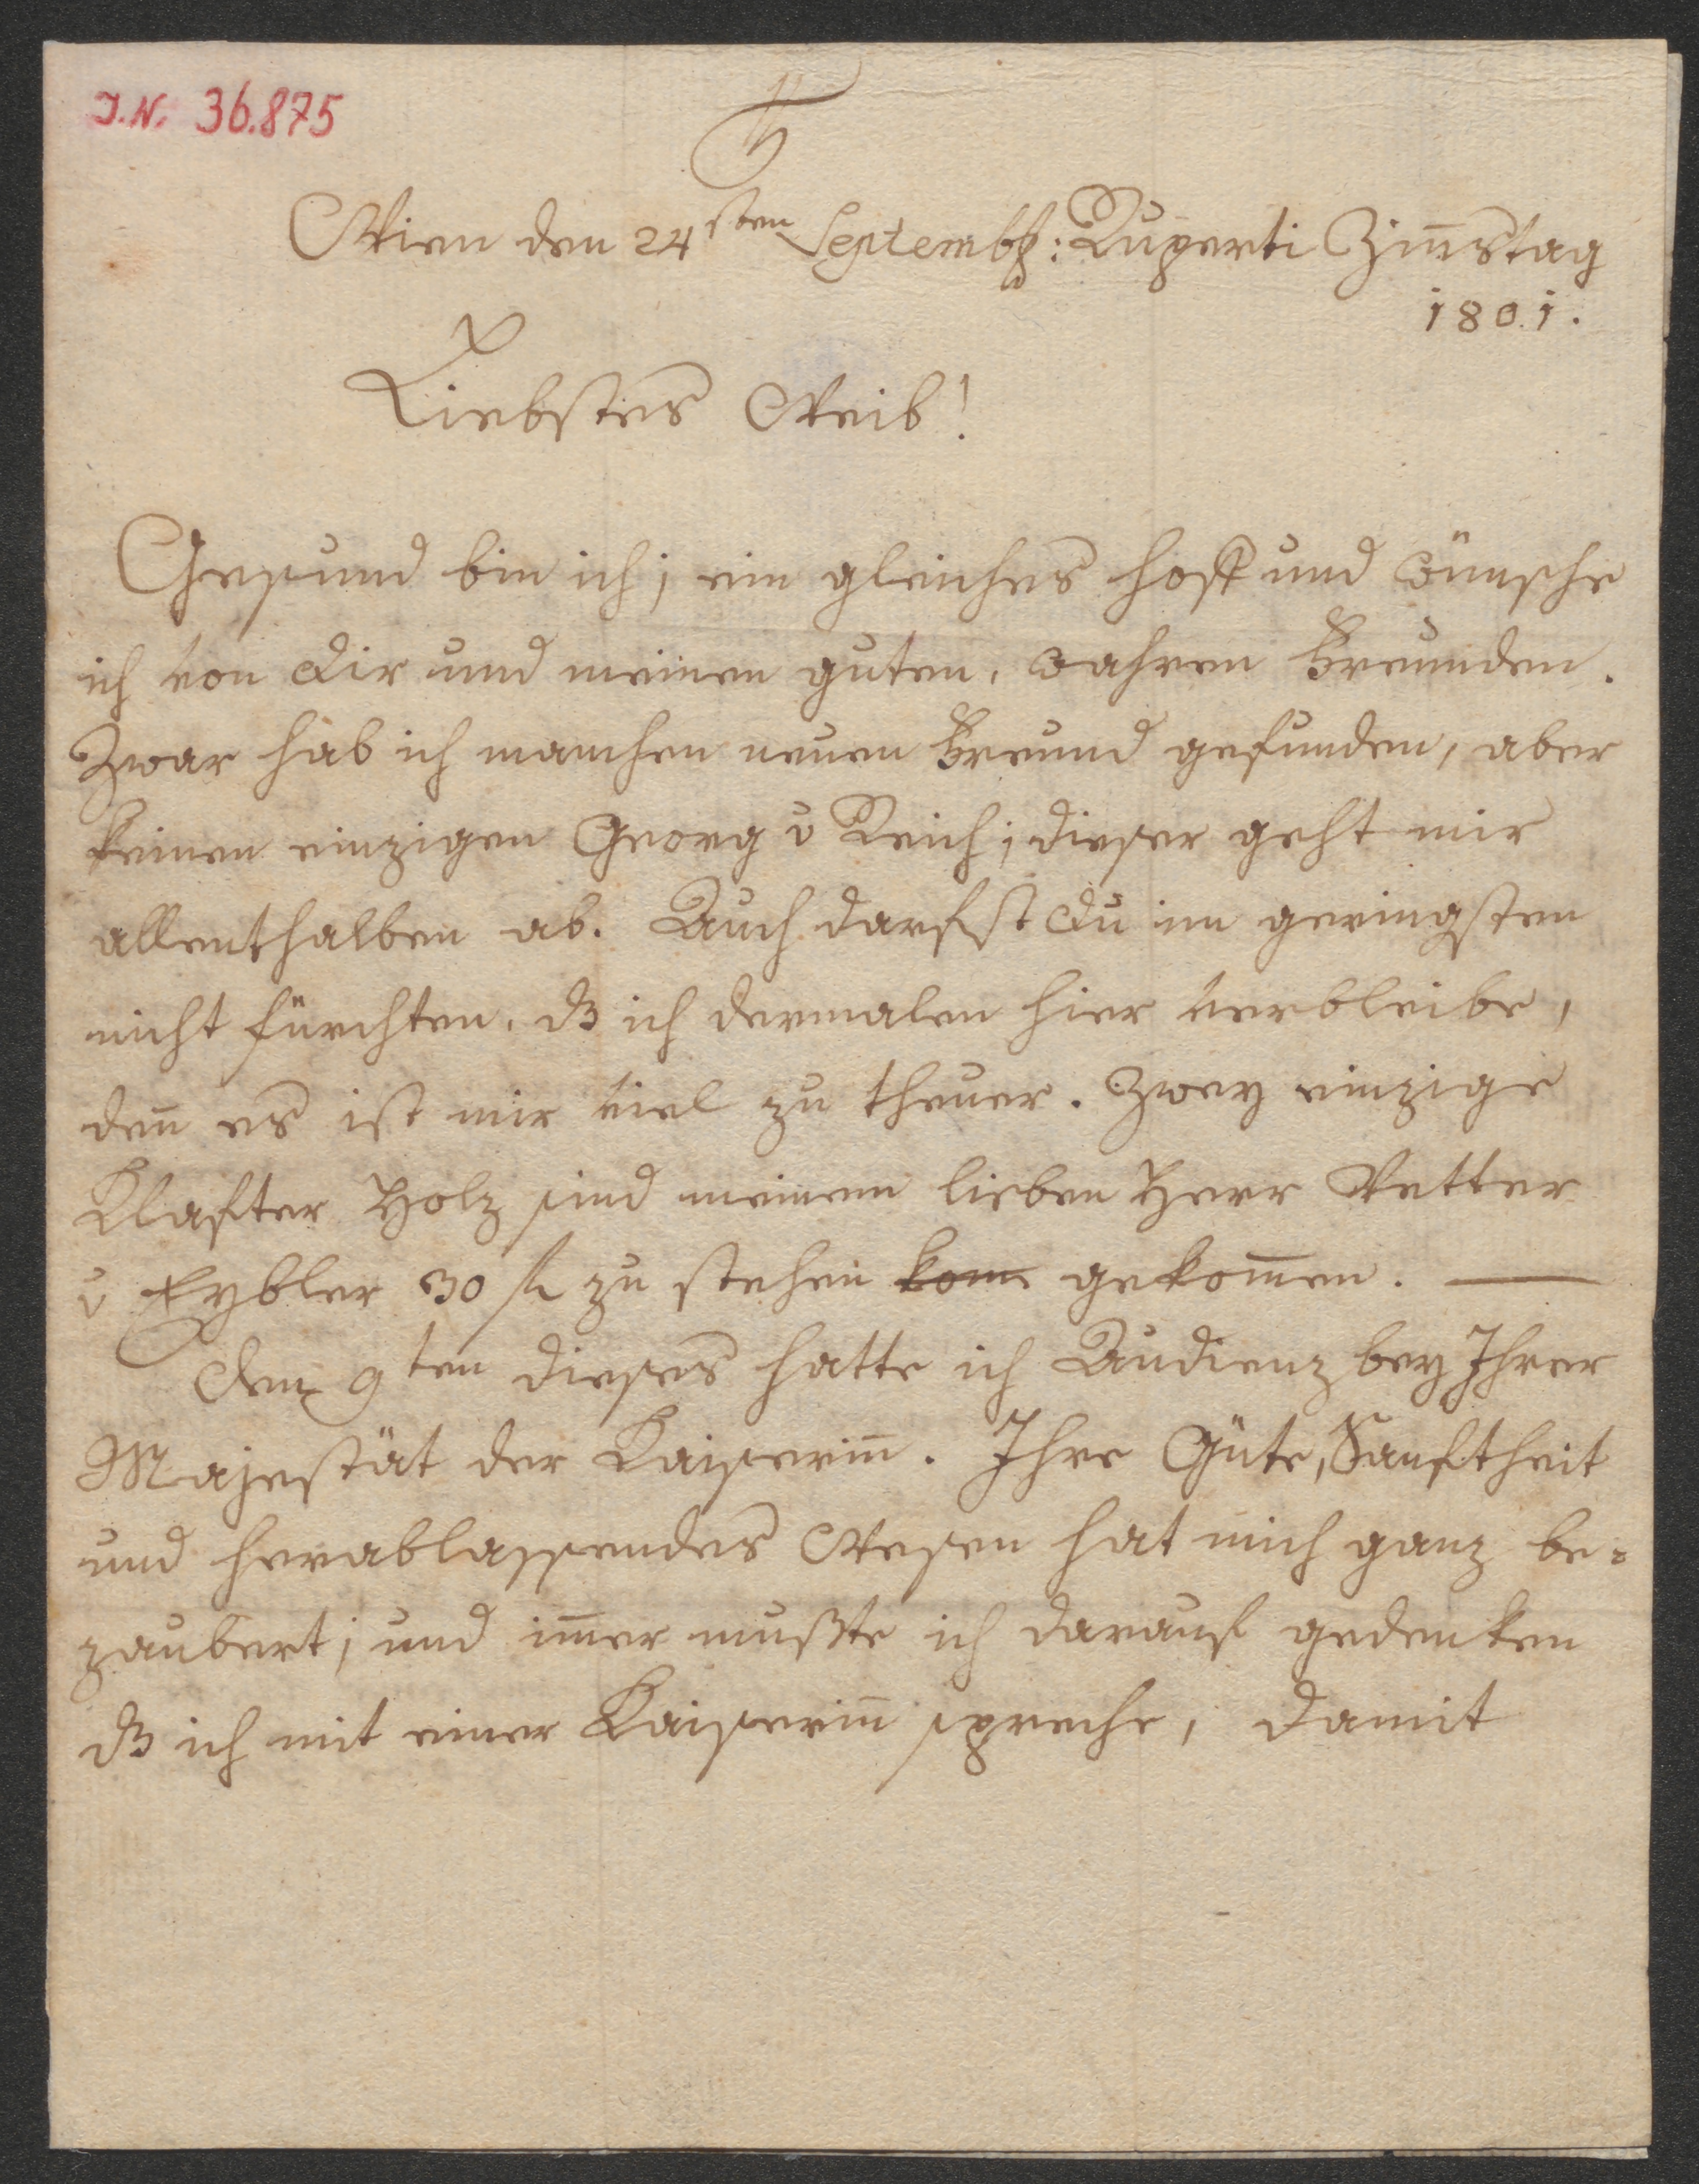 I.N. 36.875
Wien den 24sten Septembr: Ruperti Zinstag
1801.
Liebstes Weib!
Gesund bin ich; ein gleiches hoff und wünsche
ich von Dir und meinen guten, wahren Freunden.
Zwar hab ich manchen neuen Freund gefunden, aber
keinen einzigen Georg v Reich; dieser geht mir
allenthalben ab. Auch darfst Du im geringsten
nicht fürchten, dß ich dermalen hier verbleibe,
den̄ es ist mir viel zu theuer. Zwey einzige
Klafter Holz sind meinem lieben Herr Vetter
v Eybler 30 fl zu stehen kom gekom̄en. —
Den 9ten dieses hatte ich Audienz bey Ihrer
Majestät der Kaiserin̄. Ihre Güte, Sanftheit
und herablassendes Wesen hat mich ganz be=
zaubert; und im̄er mußte ich darauf gedenken
dß ich mit einer Kaiserin̄ spreche, damit